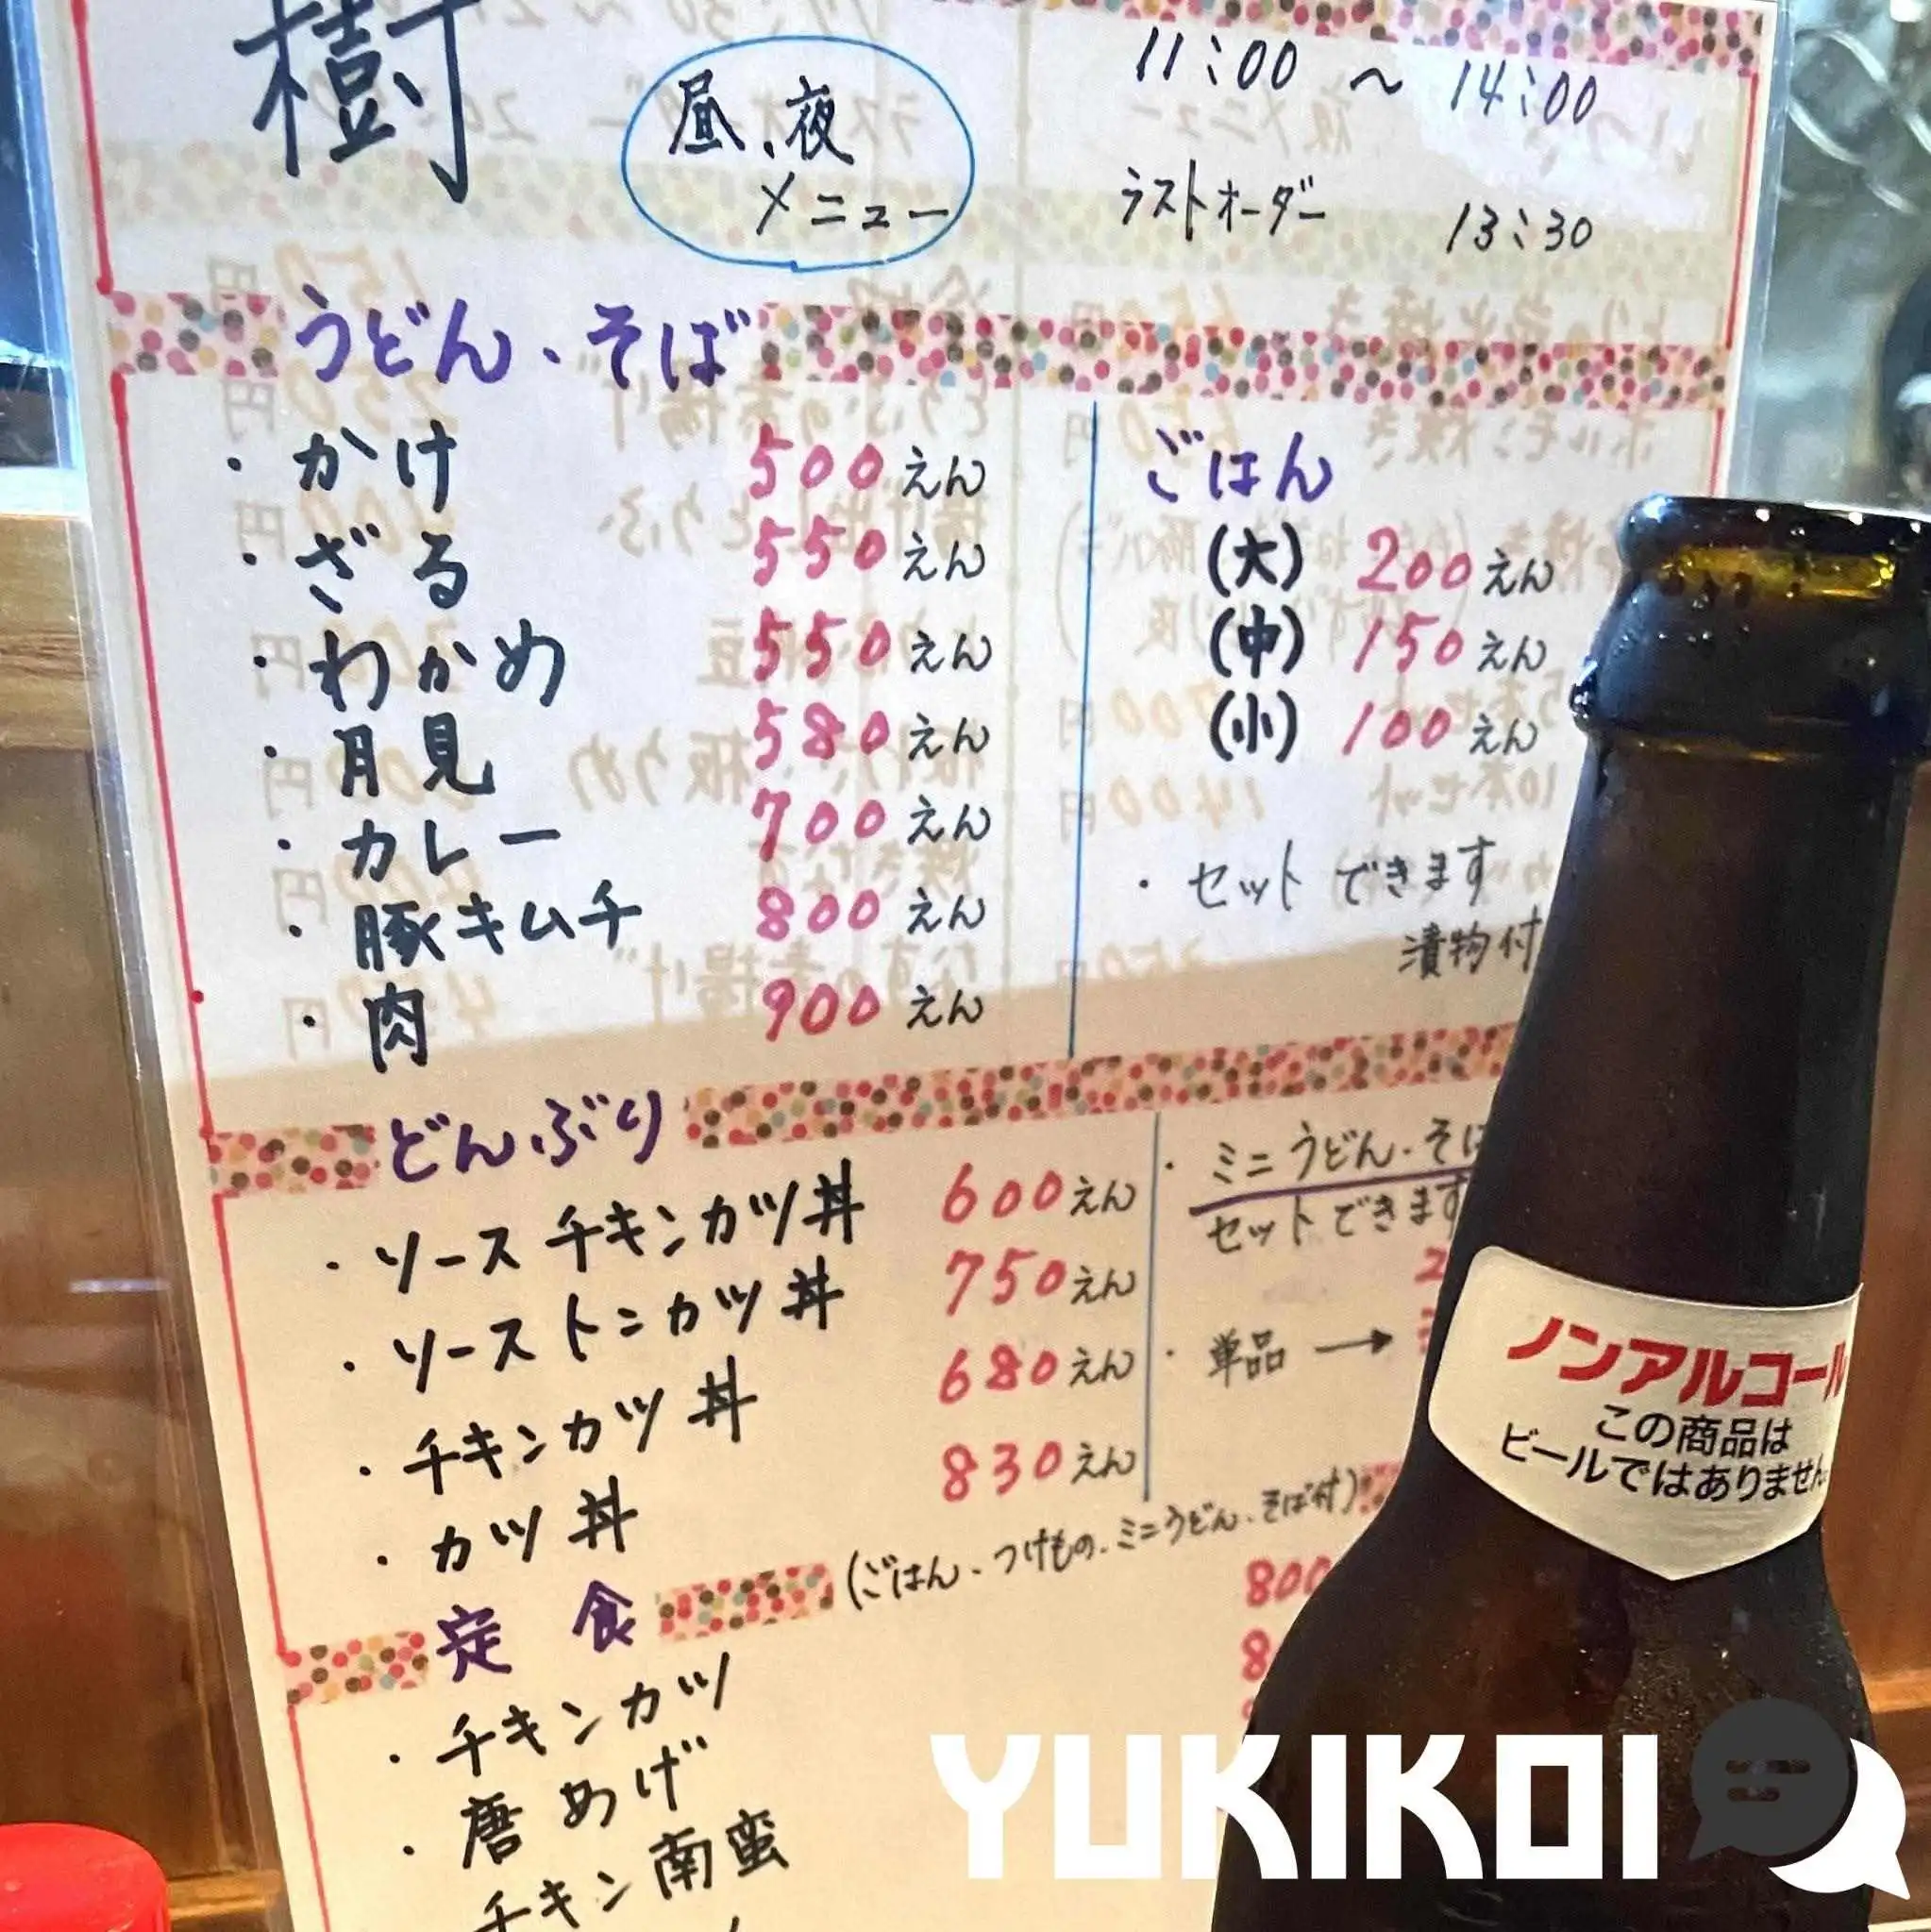 樹
昼、夜
メニュー
11:00 ~ 14:00
ラストオーダー 13:30
うどん・そば
・かけ 500えん
・ざる 550えん
・わかめ 550えん
・月見 580えん
・カレー 700えん
・豚キムチ 800えん
・肉 900えん
ごはん
(大) 200えん
(中) 150えん
(小) 100えん
・セットできます
漬物付
どんぶり
・ソースチキンカツ丼 600えん
・ソーストンカツ丼 750えん
・チキンカツ丼 680えん
・カツ丼 830えん
・ミニうどん・そば
セットできます
・単品 →
定食 (ごはん・つけもの・ミニうどん・そば付)
・チキンカツ 800
・唐あげ
チキン南蛮
ノンアルコール
この商品は
ビールではありません。
YUKIKOI